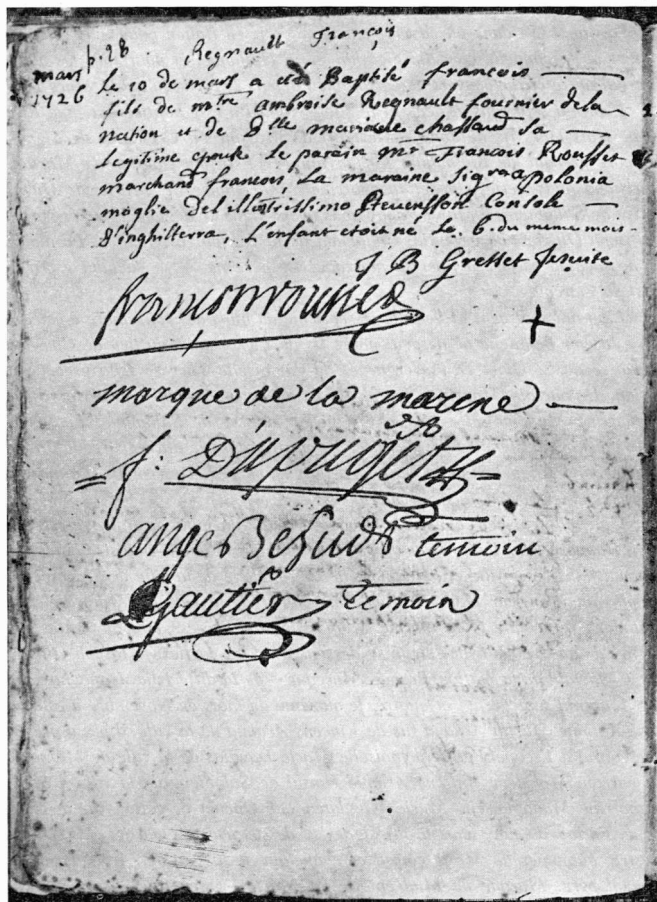 p. 28 Regnault François
mars
1726
Le 10 de mars a été Baptisé francois
fils de mtre ambroise Regnault fournier de la
nation et de Dlle mariane chassaud sa
legitime epouse le parain mr François Rousset
marchand francois, La maraine sigra apolonia
moglie del illustrissimo Stevensson Console
D'inghilterra, L'enfant etoit né le 6. du meme mois
J B Gresset Jesuite
francois rousset
+
marque de la marene
f: Dupuget
ange temoin
Gautier temoin